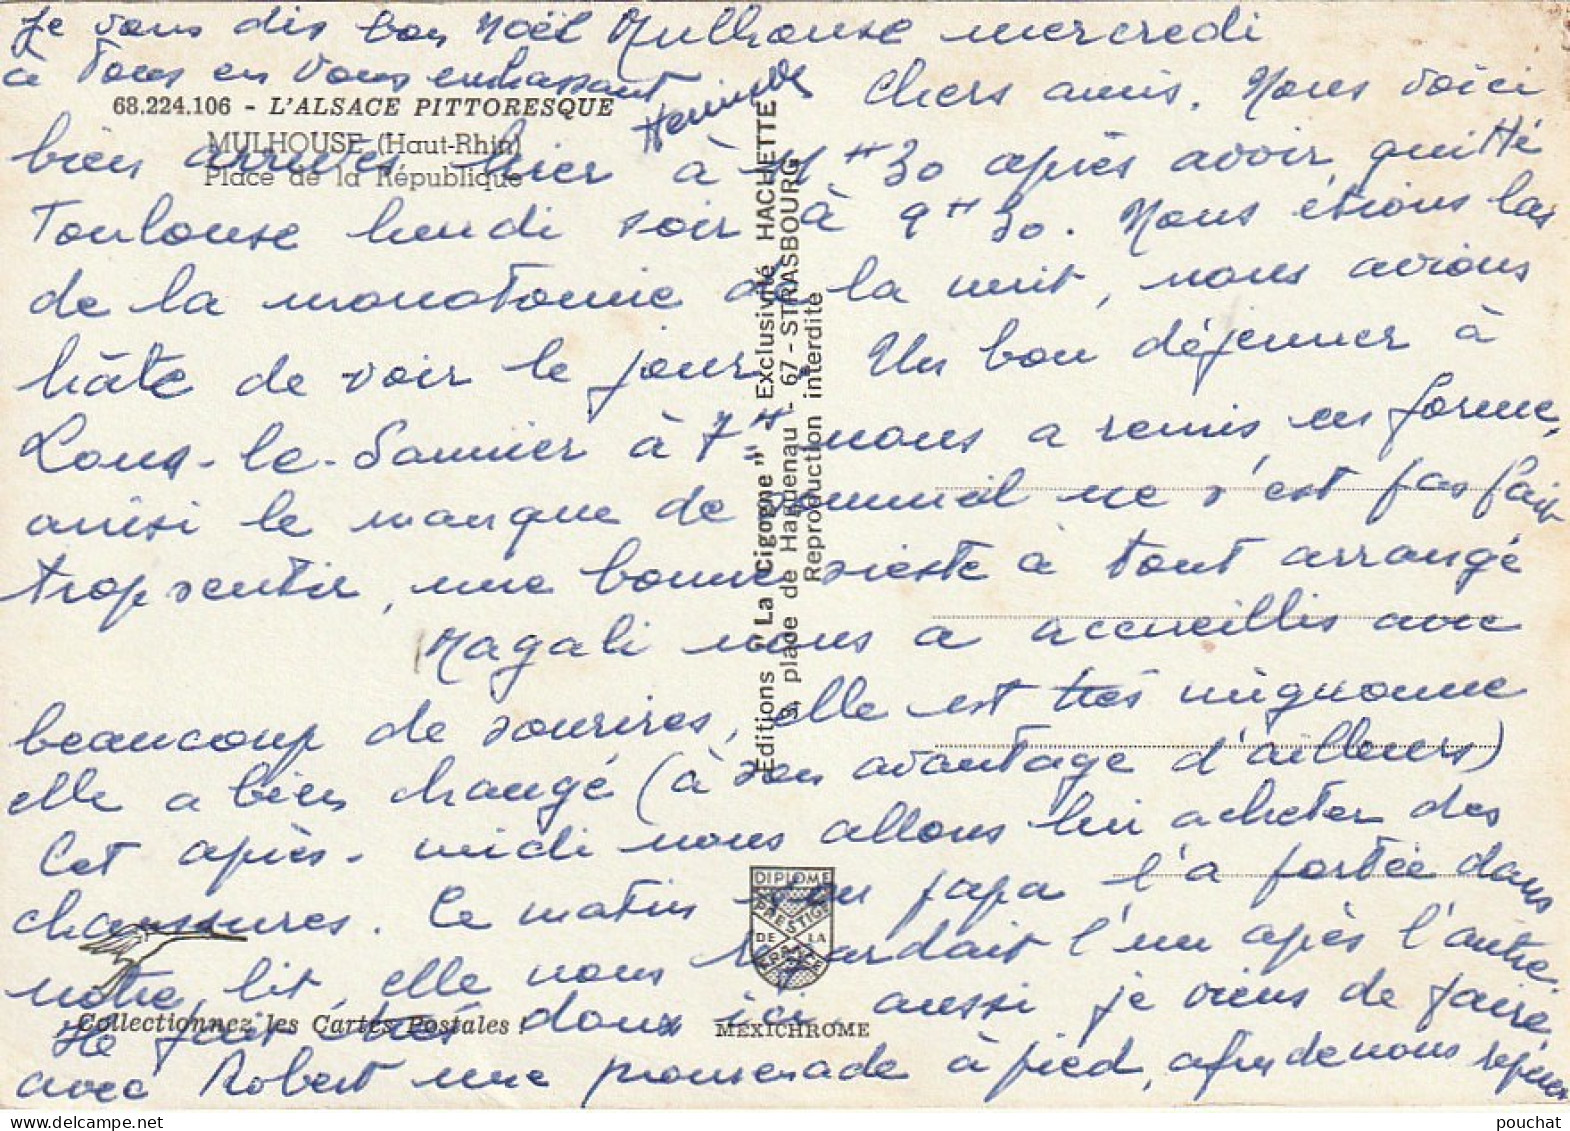 Je vous dis bon Noël Mulhouse mercredi
à Tous en Vous embrassant
Chers amis. Nous voici
68.224.106 - L'ALSACE PITTORESQUE
MULHOUSE (Haut-Rhin)
Place de la République
bien arrivés hier à 11 H 30 après avoir quitté
Toulouse lundi soir à 9 H 30. Nous étions las
de la monotonie de la nuit, nous avions
hâte de voir le jour. Un bon déjeuner à
Lons-le-Saunier à 7 H nous a remis en forme,
ainsi le manque de sommeil ne s'est pas fait
trop sentir, une bonne sieste à tout arrangé
Magali nous a accueillis avec
beaucoup de sourires, elle est très mignonne
elle a bien changé (à son avantage d'ailleurs)
Cet après-midi nous allons lui acheter des
chaussures. Ce matin son papa l'a portée dans
notre lit, elle nous regardait l'un après l'autre.
Il fait très doux ici aussi je viens de faire
avec Robert une promenade à pied, afin de nous
Editions "La Cigogne" - Exclusivité HACHETTE
3, place de Haguenau - 67 - STRASBOURG
Reproduction interdite
DIPLOME
PRESTIGE
DE LA
FRANCE
Collectionnez les Cartes Postales !
MEXICHROME
pouchat